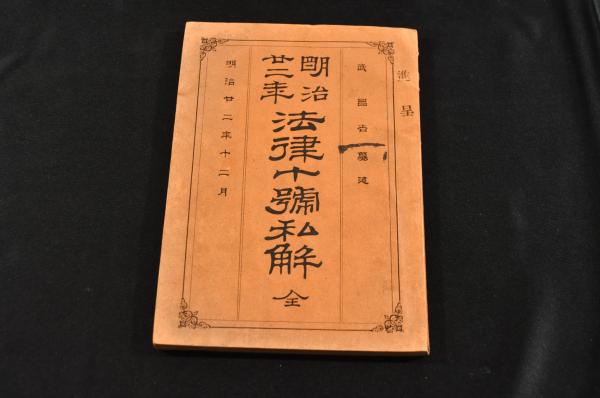 進呈
武昌吉墓述
明治
廿二年
法律十號私解 全
明治廿二年十二月